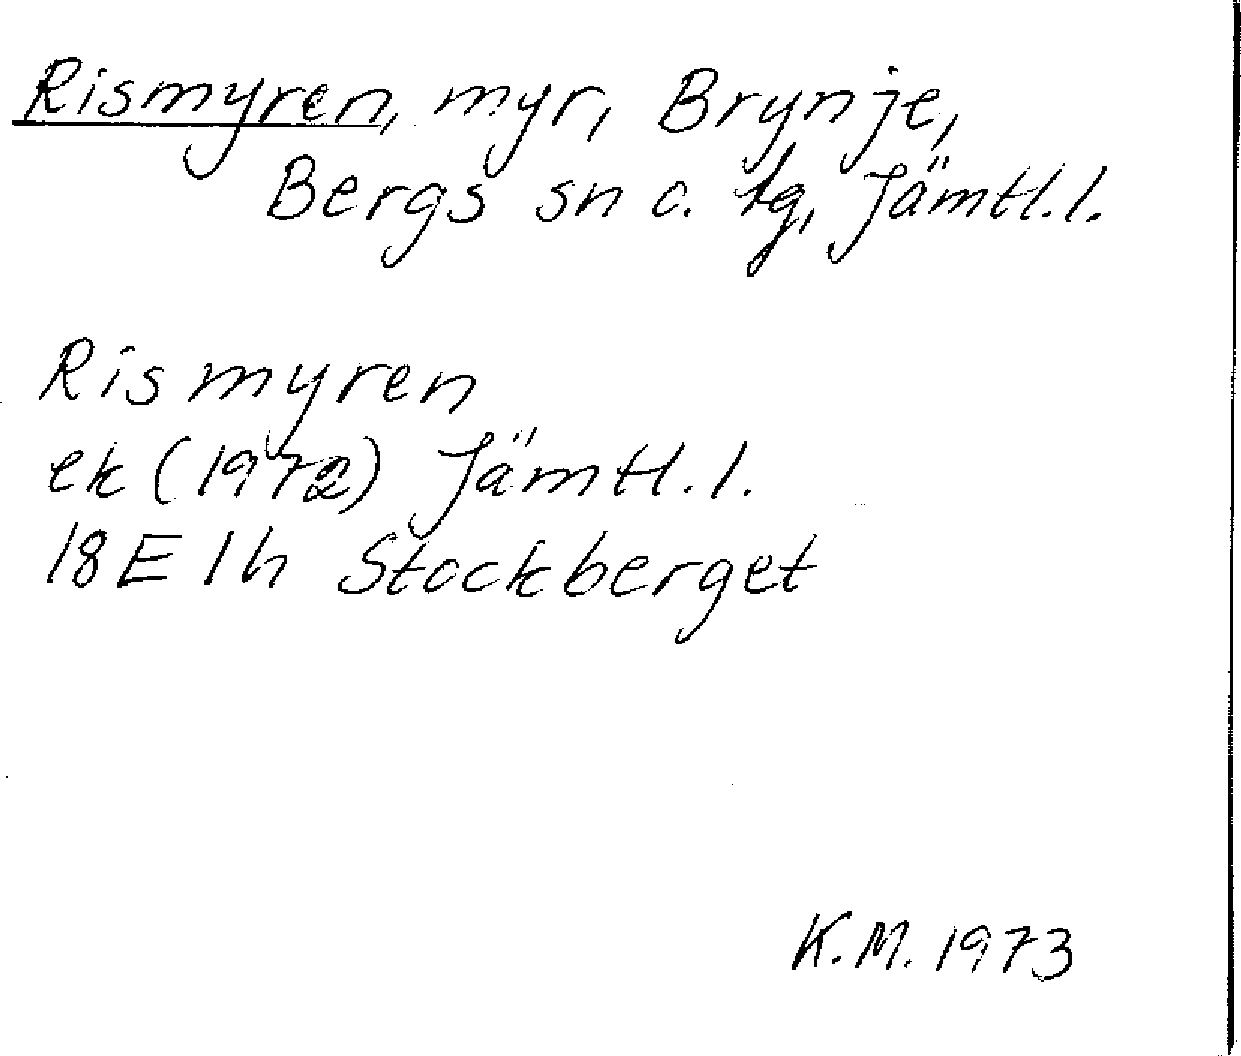 Rismyren, myr, Brynje,
Bergs sn o. tg, Jämtl.l.
Rismyren
ek (1972) Jämtl.l.
18E 1h Stockberget
K.M. 1973